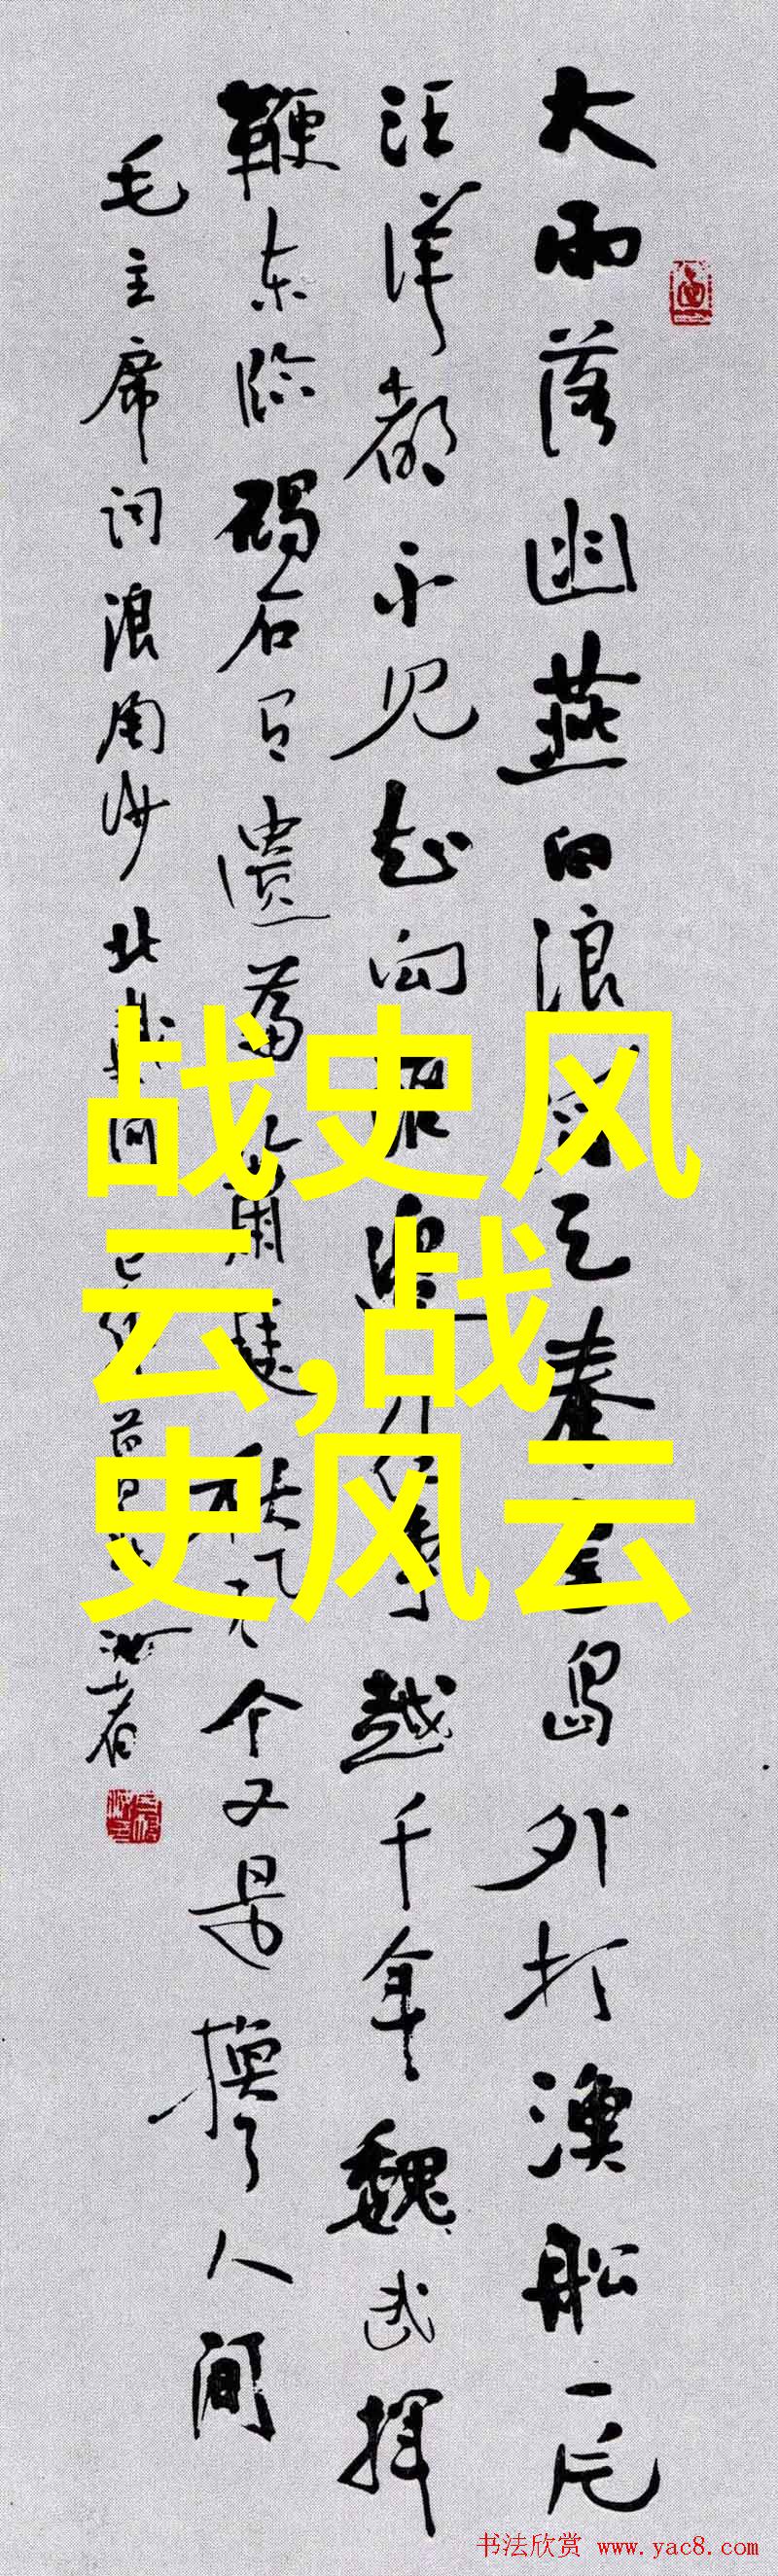 大雨落幽燕白浪滔天秦皇島外打漁船一片
汪洋都不见知向誰邊往事越千年魏武揮
鞭东临碣石有遗篇萧瑟秋风今又是換了人间
毛主席词浪淘沙北戴河
战史风
云,战
史风云
书法欣赏 www.yac8.com